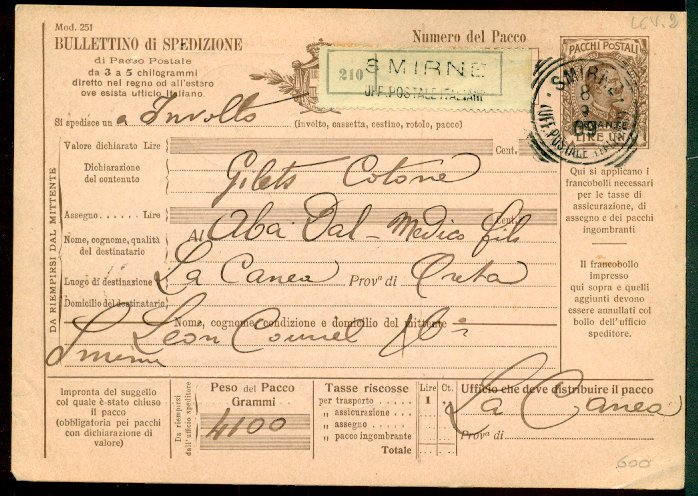 Mod. 251
LEV. 2
BULLETTINO DI SPEDIZIONE
di Pacco Postale
da 3 a 5 chilogrammi
diretto nel regno od all'estero
ove esista ufficio italiano.
Numero del Pacco
210
SMIRNE
UFF. POSTALE ITALIANI
PACCHI POSTALI
LIRE UNA
SMIRNE
8
09
UFF. POSTALE
Si spedisce un a Involto (involto, cassetta, cestino, rotolo, pacco)
Valore dichiarato Lire Cent.
Dichiarazione
del contenuto
Gilets Cotone
Assegno . . Lire Cent.
Al Aba Dal-Medico fils
Nome, cognome, qualità
del destinatario
Luogo di destinazione La Canea Provª di Creta
Domicilio del destinatario
Nome, cognome, condizione e domicilio del mittente
Leon
DA RIEMPIRSI DAL MITTENTE
Qui si applicano i
francobolli necessari
per le tasse di
assicurazione, di
assegno e dei pacchi
ingombranti
Il francobollo
impresso
qui sopra e quelli
aggiunti devono
essere annullati col
bollo dell'ufficio
speditore.
Impronta del suggello
col quale è stato chiuso
il pacco
(obbligatoria pei pacchi
con dichiarazione di
valore)
Da riempirsi
dall'ufficio speditore
Peso del Pacco
Grammi
4100
Tasse riscosse Lire Ct.
per trasporto . . . . 1
„ assicurazione . . .
„ assegno . . . . .
„ pacco ingombrante
Totale . .
Ufficio che deve distribuire il pacco
La Canea
Provª di
600